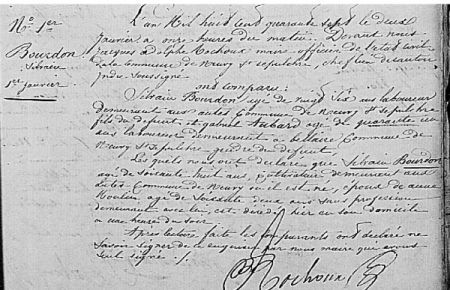 No. 1er
Bourdon
Silvain
1er janvier
L'an mil huit cent quarante sept le deux
janvier à onze heures du matin. Devant nous
Jacques Rochoux maire officier de l'état civil
de la commune de Neuvy St Sepulchre, chef lieu de canton
Indre soussigné
ont comparu:
Silvain Bourdon agé de vingt six ans laboureur
demeurant aux commune de Neuvy St Sepulchre
fils du defunt et gabriel Aubard agé de quarante
ans laboureur demeurant commune de
Neuvy St Sepulchre gendre du defunt
Les quels nous ont declaré que Silvain Bourdon
agé de soixante huit ans, demeurant aux
commune de Neuvy où il est né, epoux de
Moulin agée de soixante deux ans sans profession
demeurant avec lui, est décédé hier en son domicile
a une heure du soir
Après lecture faite les comparants ont déclaré ne
savoir signer de ce enquis par nous maire qui avons
seul signé ./.
Rochoux